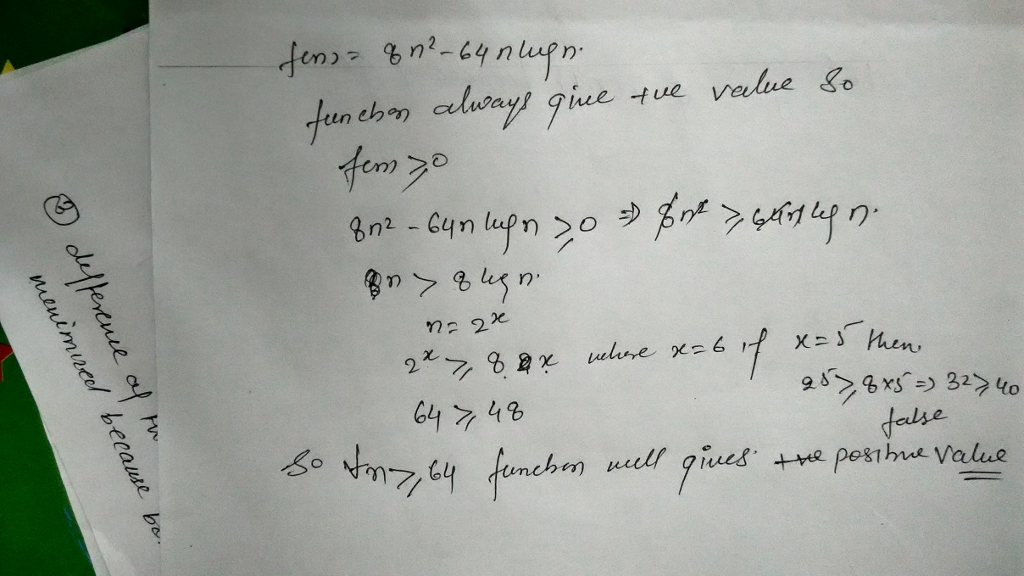 f(n) = 8n² - 64 n lg n.
function always give +ve value so
f(n) ≥ 0
8n² - 64n lg n ≥ 0 ⇒ 8n² ≥ 64n lg n.
n > 8 lg n.
n = 2ˣ
2ˣ ≥ 8 . x where x=6 if x=5 then
64 ≥ 48
2⁵ ≥ 8×5 ⇒ 32 ≥ 40
false
So ∀n ≥ 64 function will gives positive value
③ difference of
menimized because